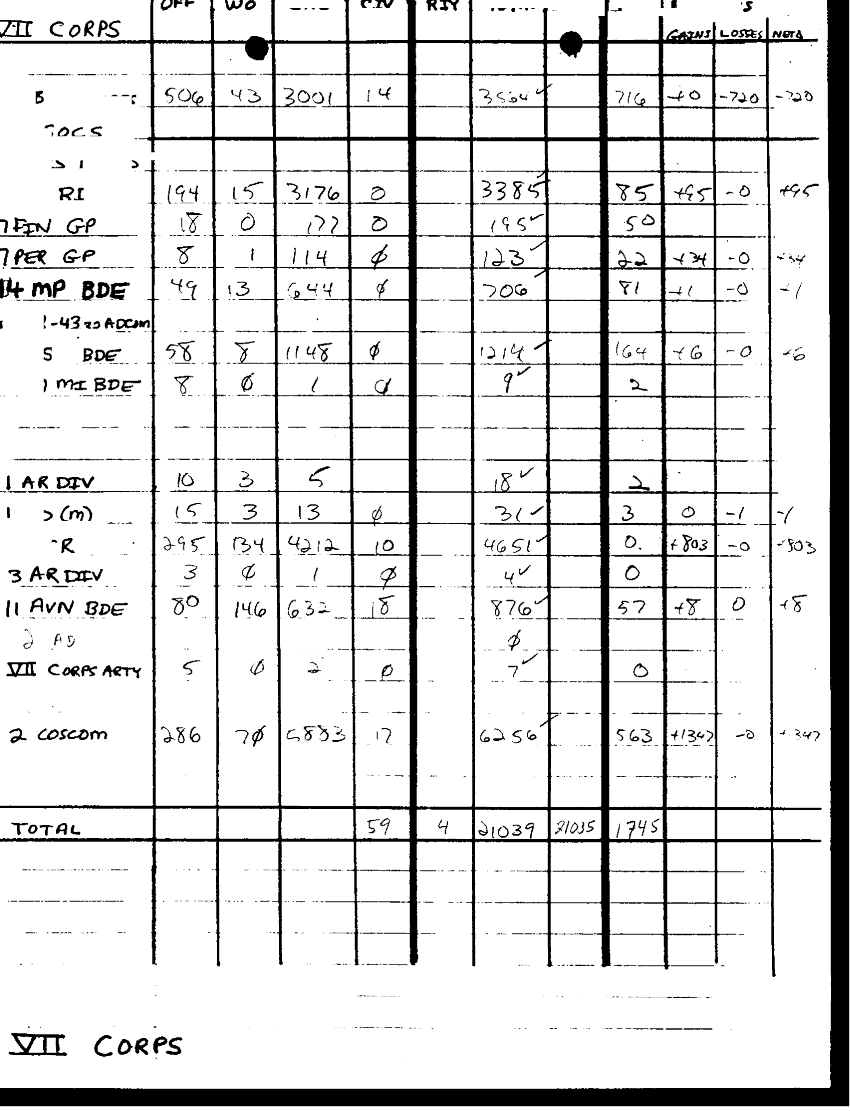 OFF WO CIV RIY
VII CORPS GAINS LOSSES NOTA
506 43 3001 14 3564✓ 716 +0 -720 -720
RI 194 15 3176 0 3385✓ 85 +95 -0 +95
7 FIN GP 18 0 177 0 195✓ 50
7 PER GP 8 1 114 ϕ 123✓ 22 +34 -0 +34
14 MP BDE 49 13 644 ϕ 706✓ 81 +1 -0 -1
BDE 58 8 1148 ϕ 1214✓ 164 +6 -0 +6
MI BDE 8 ϕ 1 0 9✓ 2
1 AR DIV 10 3 5 18✓ 2
1 (m) 15 3 13 ϕ 31✓ 3 0 -1 -1
295 134 4212 10 4651✓ 0. +803 -0 +803
3 AR DIV 3 ϕ 1 ϕ 4✓ 0
11 AVN BDE 80 146 632 18 876✓ 57 +8 0 +8
ϕ
VII CORPS ARTY 5 ϕ 2 0 7✓ 0
2 COSCOM 286 7ϕ 5883 17 6256✓ 563 +1347 -0 +1347
TOTAL 59 4 21039 21035 1745
VII CORPS